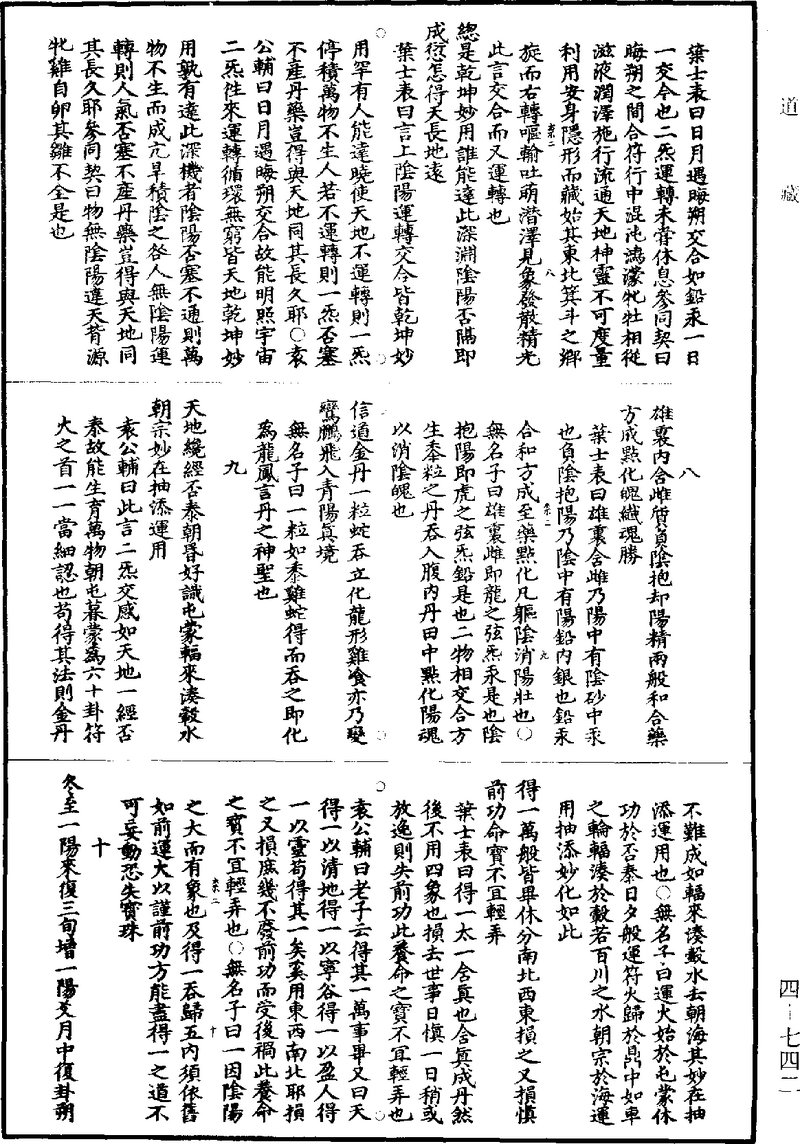 道藏
四—七四二
葉士表曰日月遇晦朔交合如鉛汞一日
一交合也二炁運轉未甞休息參同契曰
晦朔之間合符行中混沌鴻濛牝牡相從
滋液潤澤施行流通天地神靈不可度量
利用安身隱形而藏始其東北箕斗之鄉
旋而右轉嘔輪吐萌潛澤見象發散精光
此言交合而又運轉也
總是乾坤妙用誰能達此深淵陰陽否隔即
成愆怎得天長地遠
葉士表曰言上陰陽運轉交合皆乾坤妙
用罕有人能達曉使天地不運轉則一炁
停積萬物不生人若不運轉則一炁否塞
不産丹藥豈得與天地同其長久耶○袁
公輔曰日月遇晦朔交合故能明照宇宙
二炁徃來運轉循環無窮皆天地乾坤妙
用孰有達此深機者陰陽否塞不通則萬
物不生而成亢旱積陰之咎人無陰陽運
轉則人氣否塞不産丹藥豈得與天地同
其長久耶參同契曰物無陰陽違天背源
牝雞自卵其雛不全是也
八
雄裏內含雌質負陰抱却陽精兩般和合藥
方成點化魄纖魂勝
葉士表曰雄裏含雌乃陽中有陰砂中汞
也負陰抱陽乃陰中有陽鉛內銀也鉛汞
合和方成至藥點化凡軀陰消陽壯也○
無名子曰雄裏雌即龍之弦炁汞是也陰
抱陽即虎之弦炁鉛是也二物相交合方
生黍粒之丹吞入腹內丹田中點化陽魂
以消陰魄也
信道金丹一粒蛇吞立化龍形雞飡亦乃變
鸞鵬飛入青陽眞境
無名子曰一粒如黍雞蛇得而吞之即化
爲龍鳳言丹之神聖也
九
天地纔經否泰朝昏好識屯蒙輻來湊轂水
朝宗妙在抽添運用
袁公輔曰此言二炁交感如天地一經否
泰故能生育萬物朝屯暮蒙爲六十卦符
火之首一一當細認也苟得其法則金丹
不難成如輻來湊轂水去朝海其妙在抽
添運用也○無名子曰運火始於屯蒙休
功於否泰日夕般運符火歸於鼎中如車
之輪輻湊於轂若百川之水朝宗於海運
用抽添妙化如此
得一萬般皆畢休分南北西東損之又損愼
前功命寶不宜輕弄
葉士表曰得一太一含眞也含眞成丹然
後不用四象也損去世事日愼一日稍或
放逸則失前功此養命之寶不宜輕弄也
袁公輔曰老子云得其一萬事畢又曰天
得一以清地得一以寧谷得一以盈人得
一以靈苟得其一矣奚用東西南北耶損
之又損庶幾不廢前功而受後禍此養命
之寶不宜輕弄也○無名子曰一因陰陽
之大而有象也及得一吞歸五內須依舊
如前運火以謹前功方能盡得一之道不
可妄動恐失寶珠
十
冬至一陽來復三旬增一陽爻月中復卦朔